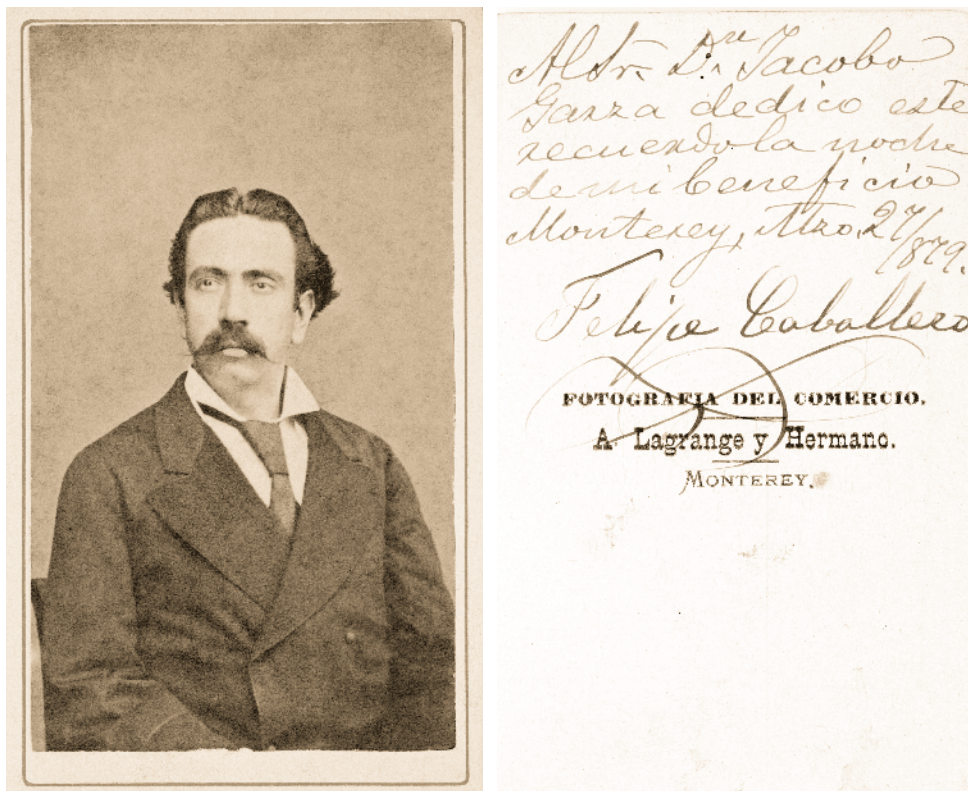 Al Sr. Dn. Jacobo
Garza dedico este
recuerdo la noche
de mi beneficio
Monterey, Mzo. 27/879.
Felipe Caballero
FOTOGRAFIA DEL COMERCIO.
A. Lagrange y Hermano.
MONTEREY.